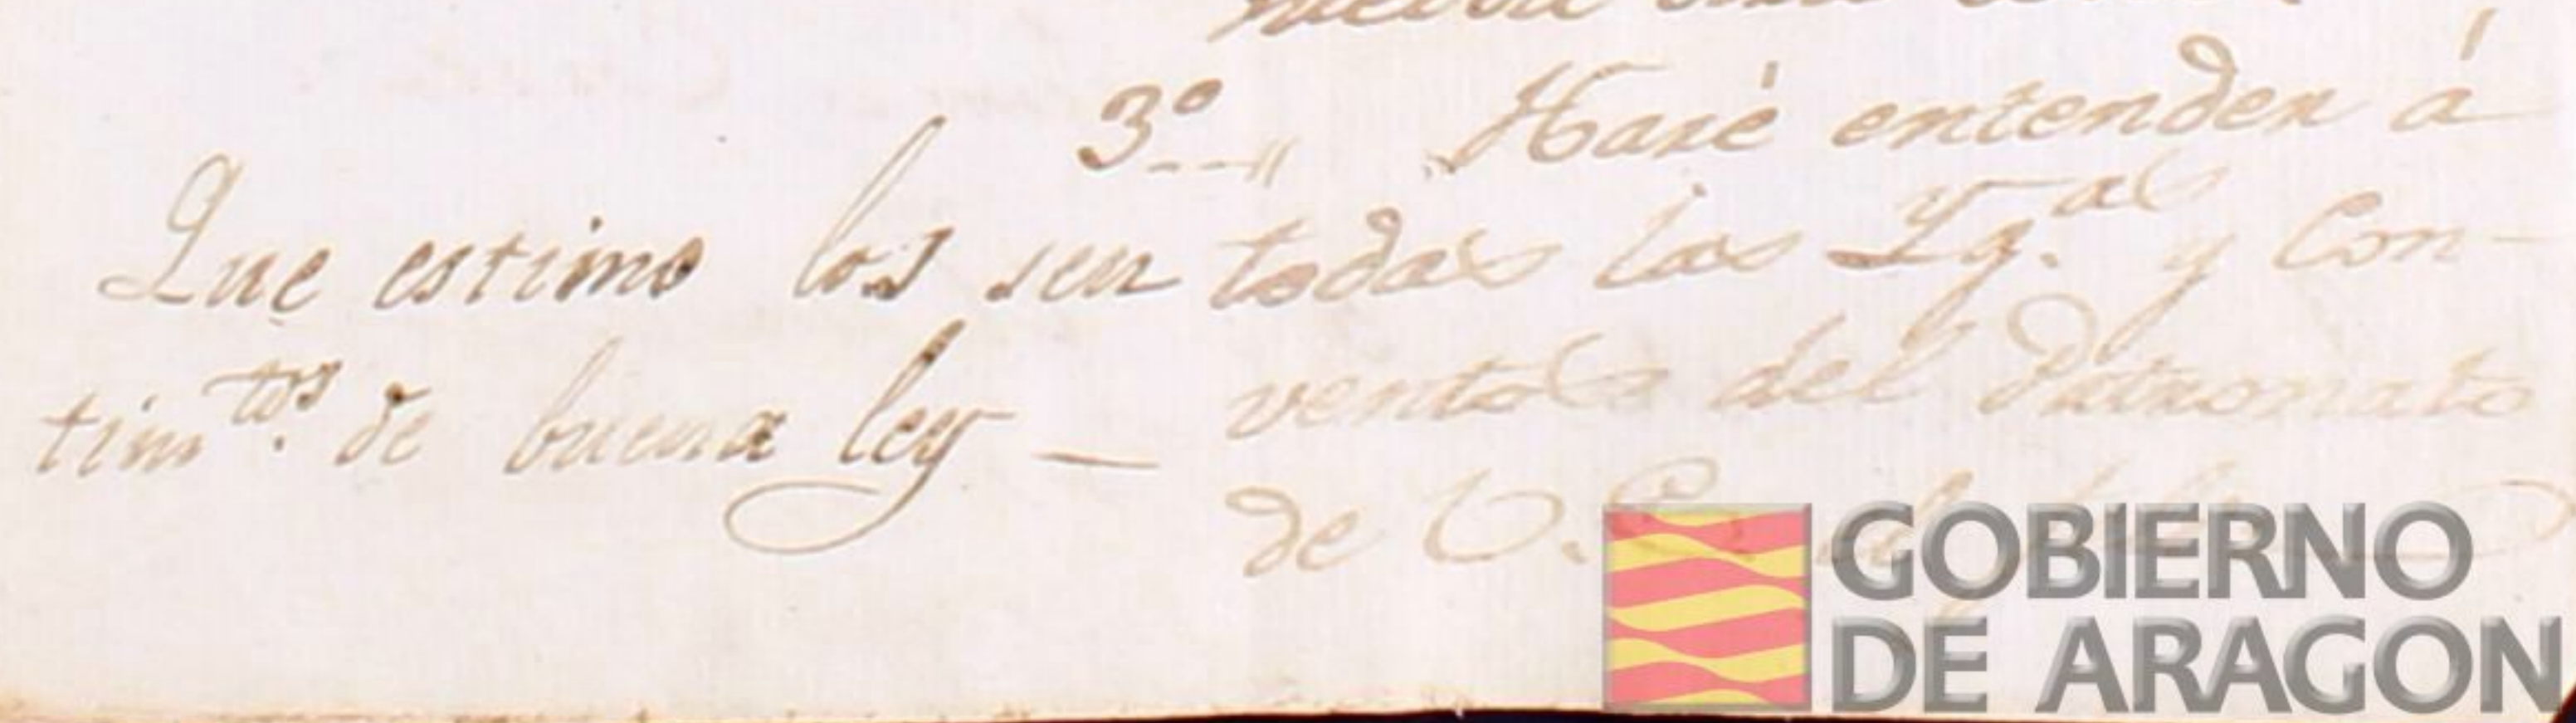 3º Haré entender á
todas las Yg.as y Con-
ventos del Patronato
de V.
Que estimo los sen
tim.tos de buena ley —
GOBIERNO
DE ARAGON